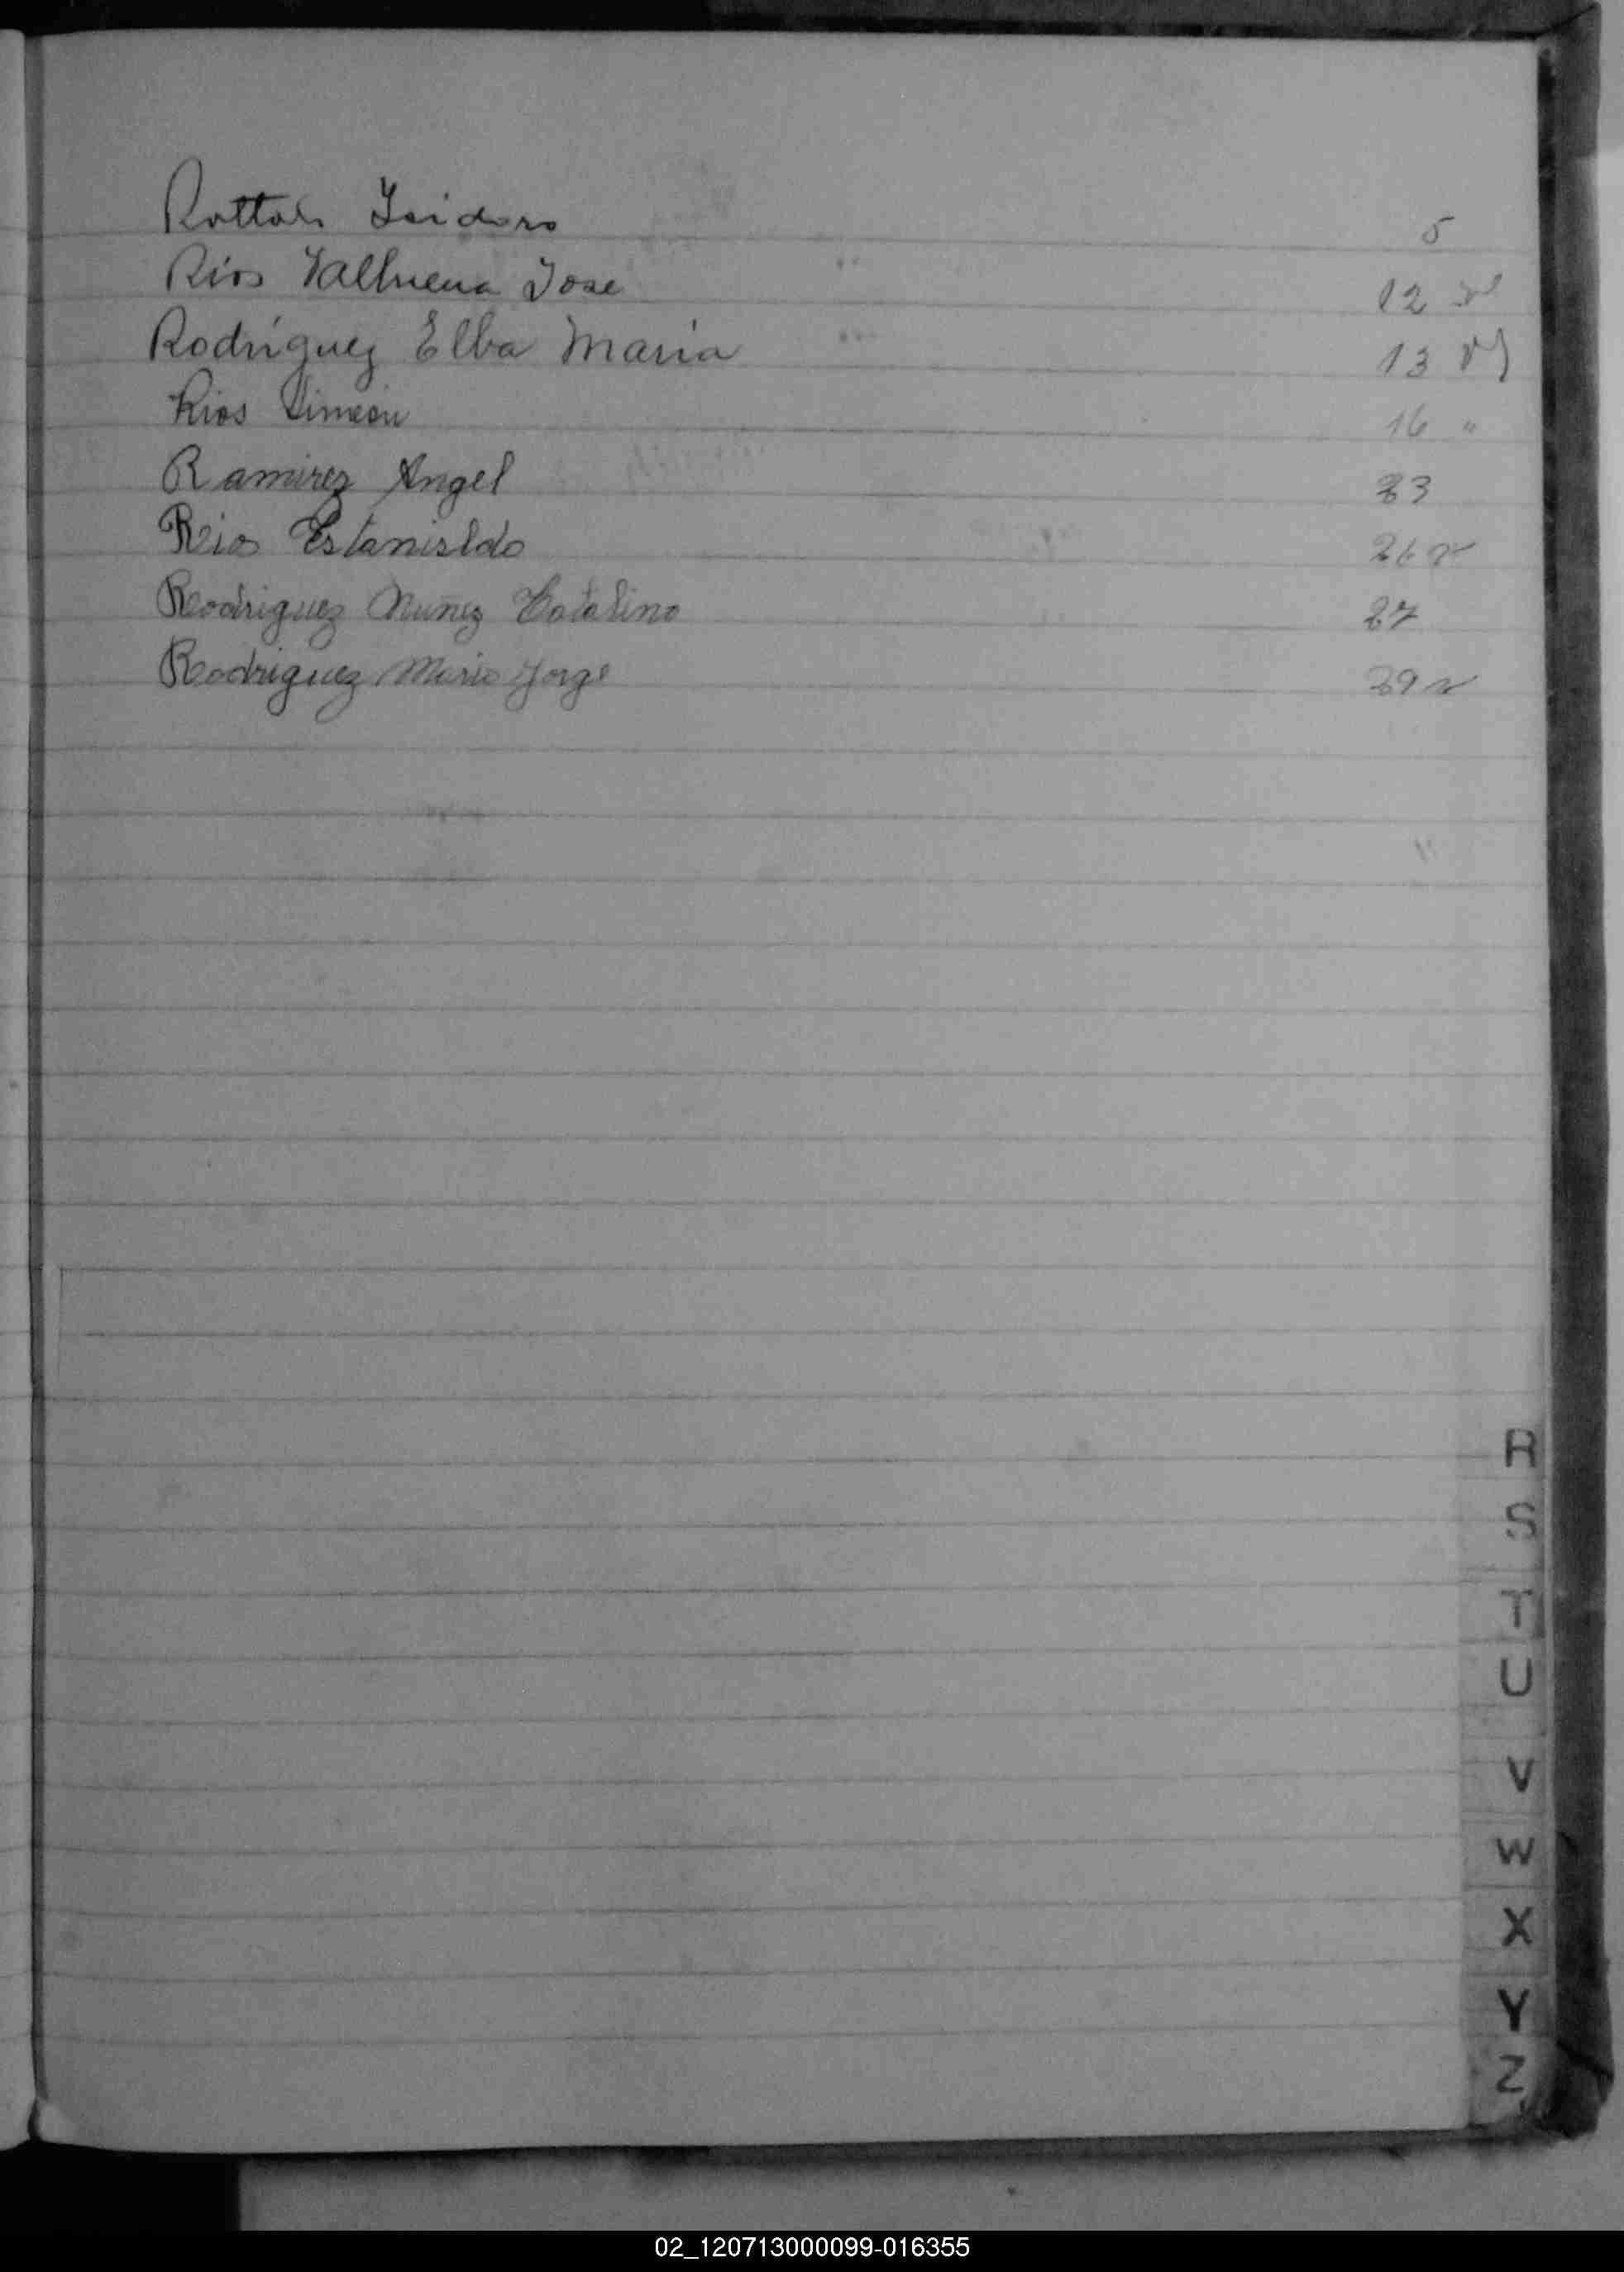 Isidoro 5
Rios Jose 12
Rodríguez Elba Maria 13
Rios Simeón 16 "
Ramirez Angel 23
Rios Estanisldo 26
Rodriguez Nuñez Catalino 27
Rodriguez Mario Jorge
R
S
T
U
V
W
X
Y
Z
02_120713000099-016355